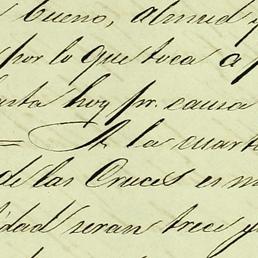 bueno, almud y
por lo que toca a
hasta hoy pr. causa
= A la cuarta
de las Cruces es
idad seran trece y